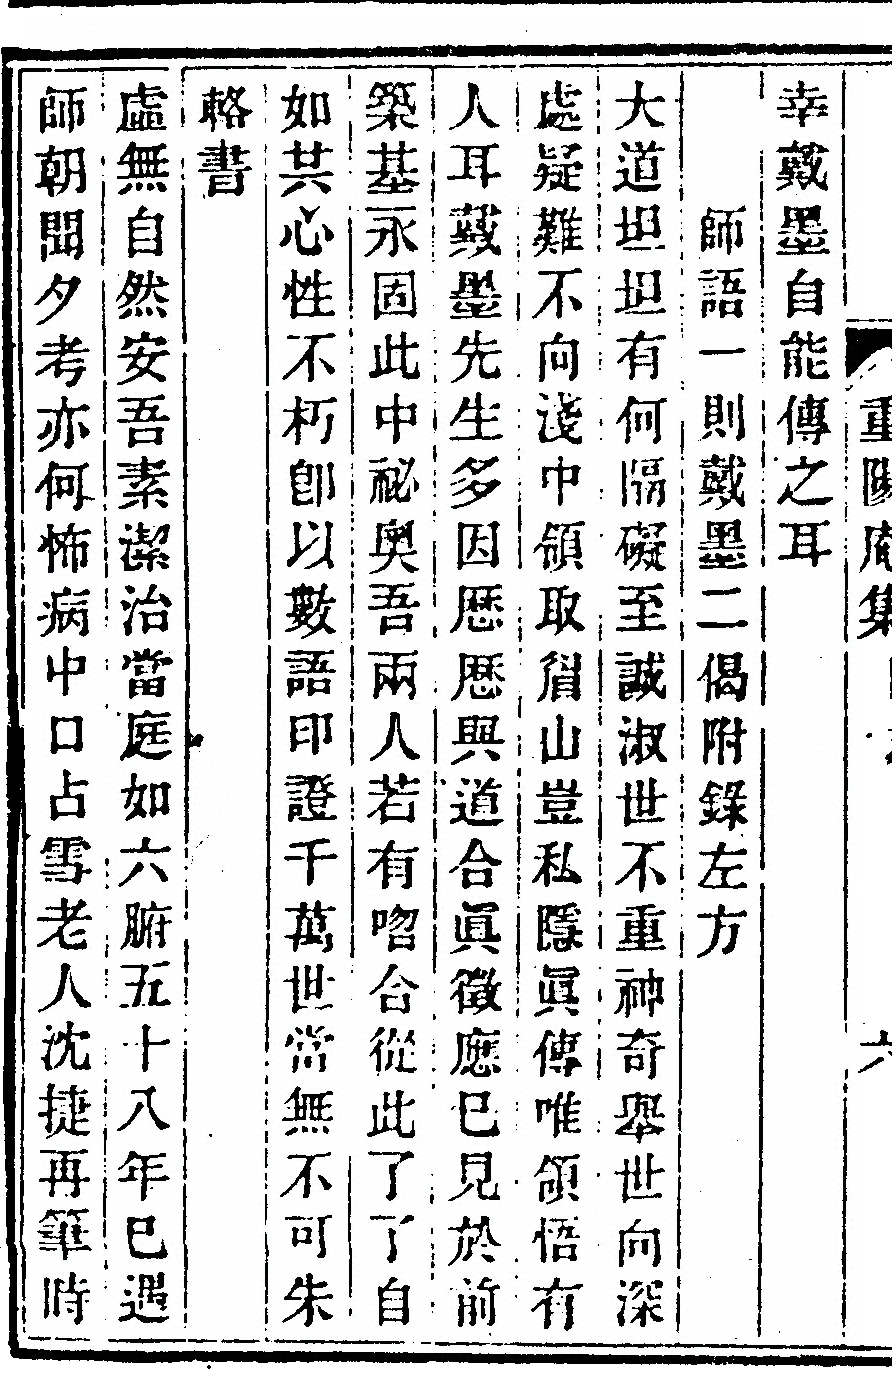 重陽庵集
六
幸戴墨自能傳之耳
師語一則戴墨二偈附錄左方
大道坦坦有何隔礙至誠淑世不重神奇舉世向深
處疑難不向淺中領取眉山豈私隱眞傳唯領悟有
人耳戴墨先生多因厯厯與道合眞徵應已見於前
築基永固此中祕奧吾兩人若有吻合從此了了自
如其心性不朽卽以數語印證千萬世當無不可朱
輅書
虛無自然安吾素潔治當庭如六腑五十八年已遇
師朝聞夕考亦何怖病中口占雪老人沈捷再筆時